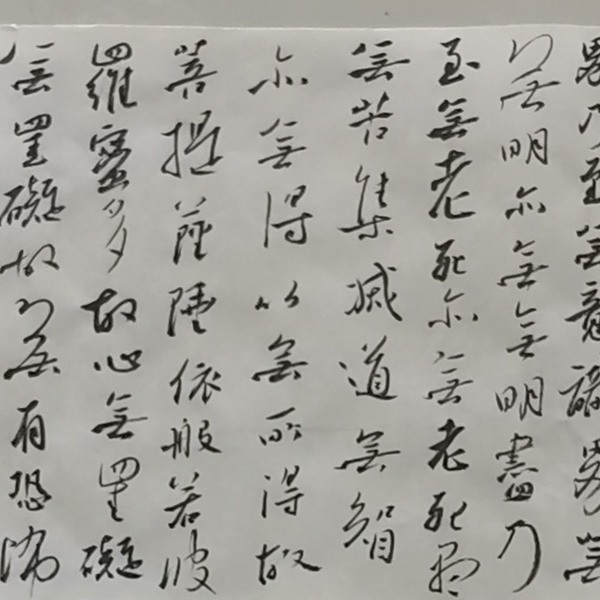 界乃至無意識界無
無明亦無無明盡乃
至無老死亦無老死盡
無苦集滅道無智
亦無得以無所得故
菩提薩埵依般若波
羅蜜多故心無罣礙
無罣礙故無有恐怖